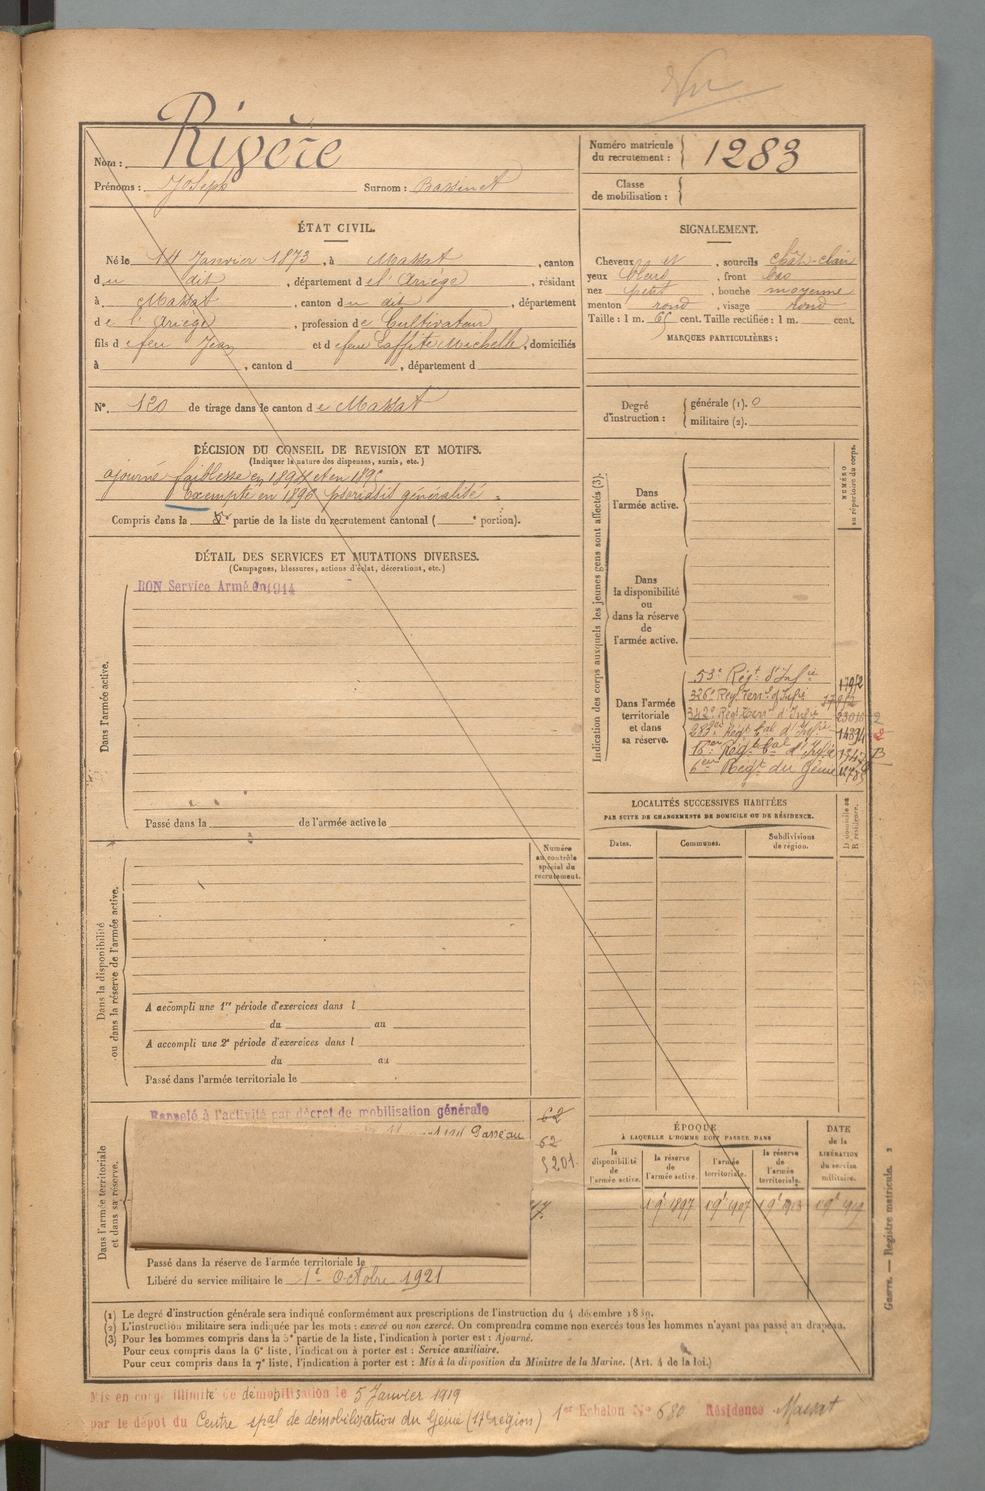 Vu
Rivère
Nom :
Prénoms : Joseph Surnom : Bassinet
Numéro matricule du recrutement : 1283
Classe de mobilisation :
ÉTAT CIVIL.
Né le 14 Janvier 1873, à Massat, canton
du dit, département de l'Ariège, résidant
à Massat, canton du dit, département
de l'Ariège, profession de Cultivateur
fils de feu Jean et de feue Laffite Michelle, domiciliés
à , canton d , département d
N° 120 de tirage dans le canton de Massat
SIGNALEMENT.
Cheveux et , sourcils chât-clair
yeux bleus , front bas
nez petit , bouche moyenne
menton rond , visage rond
Taille : 1 m. 65 cent. Taille rectifiée : 1 m. cent.
MARQUES PARTICULIÈRES :
Degré d'instruction :
générale (1). 0
militaire (2).
DÉCISION DU CONSEIL DE REVISION ET MOTIFS.
(Indiquer la nature des dispenses, sursis, etc.)
ajourné faiblesse en 1894 et en 1895
Exempté en 1896 psoriasis généralisé
Compris dans la 5e partie de la liste du recrutement cantonal ( e portion).
DÉTAIL DES SERVICES ET MUTATIONS DIVERSES.
(Campagnes, blessures, actions d'éclat, décorations, etc.)
BON Service Armé en 1914
Dans l'armée active.
Passé dans la de l'armée active le
Indication des corps auxquels les jeunes gens sont affectés (3).
NUMÉRO au répertoire du corps.
Dans l'armée active.
Dans la disponibilité ou dans la réserve de l'armée active.
Dans l'armée territoriale et dans sa réserve.
53e Régt d'Infie
326e Rég. Terral d'Infie
342e Régt Terral d'Infie
283e Régt Tal d'Infie
15e Régt Tal d'Infie
6eme Régt du Génie
LOCALITÉS SUCCESSIVES HABITÉES
PAR SUITE DE CHANGEMENTS DE DOMICILE OU DE RÉSIDENCE.
Dates. Communes. Subdivisions de région.
D domicile ou R résidence.
Numéro au contrôle spécial du recrutement.
Dans la disponibilité ou dans la réserve de l'armée active.
A accompli une 1re période d'exercices dans l
du au
A accompli une 2e période d'exercices dans l
du au
Passé dans l'armée territoriale le
Dans l'armée territoriale et dans sa réserve.
Rappelé à l'activité par décret de mobilisation générale
Passé au
62
62
5201
Passé dans la réserve de l'armée territoriale le
Libéré du service militaire le 1er Octobre 1921
ÉPOQUE
À LAQUELLE L'HOMME DOIT PASSER DANS
la disponibilité de l'armée active.
la réserve de l'armée active.
l'armée territoriale.
la réserve de l'armée territoriale.
DATE de la LIBÉRATION du service militaire.
1 9bre 1897 1 9bre 1907 1 9bre 1913 1 9bre 1919
Guerre. — Registre matricule. 2
(1) Le degré d'instruction générale sera indiqué conformément aux prescriptions de l'instruction du 4 décembre 1889.
(2) L'instruction militaire sera indiquée par les mots : exercé ou non exercé. On comprendra comme non exercés tous les hommes n'ayant pas passé au drapeau.
(3) Pour les hommes compris dans la 5e partie de la liste, l'indication à porter est : Ajourné.
Pour ceux compris dans la 6e liste, l'indication à porter est : Service auxiliaire.
Pour ceux compris dans la 7e liste, l'indication à porter est : Mis à la disposition du Ministre de la Marine. (Art. 4 de la loi.)
Mis en congé illimité de démobilisation le 5 Janvier 1919
par le dépôt du Centre spal de démobilisation du Génie (17e région) 1er Echelon N° 680 Résidence Massat